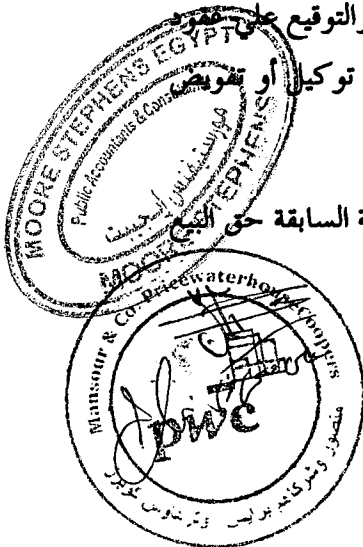 والتوقيع علي عقود
توكيل أو تفويض
ة السابقة حق البيع
MOORE STEPHENS EGYPT
Public Accountants & Consultants
مورستيفنس ايجيبت
MOORE STEPHENS
Mansour & Co. PricewaterhouseCoopers
pwc
منصور وشركاه برايس وترهاوس كوبرز